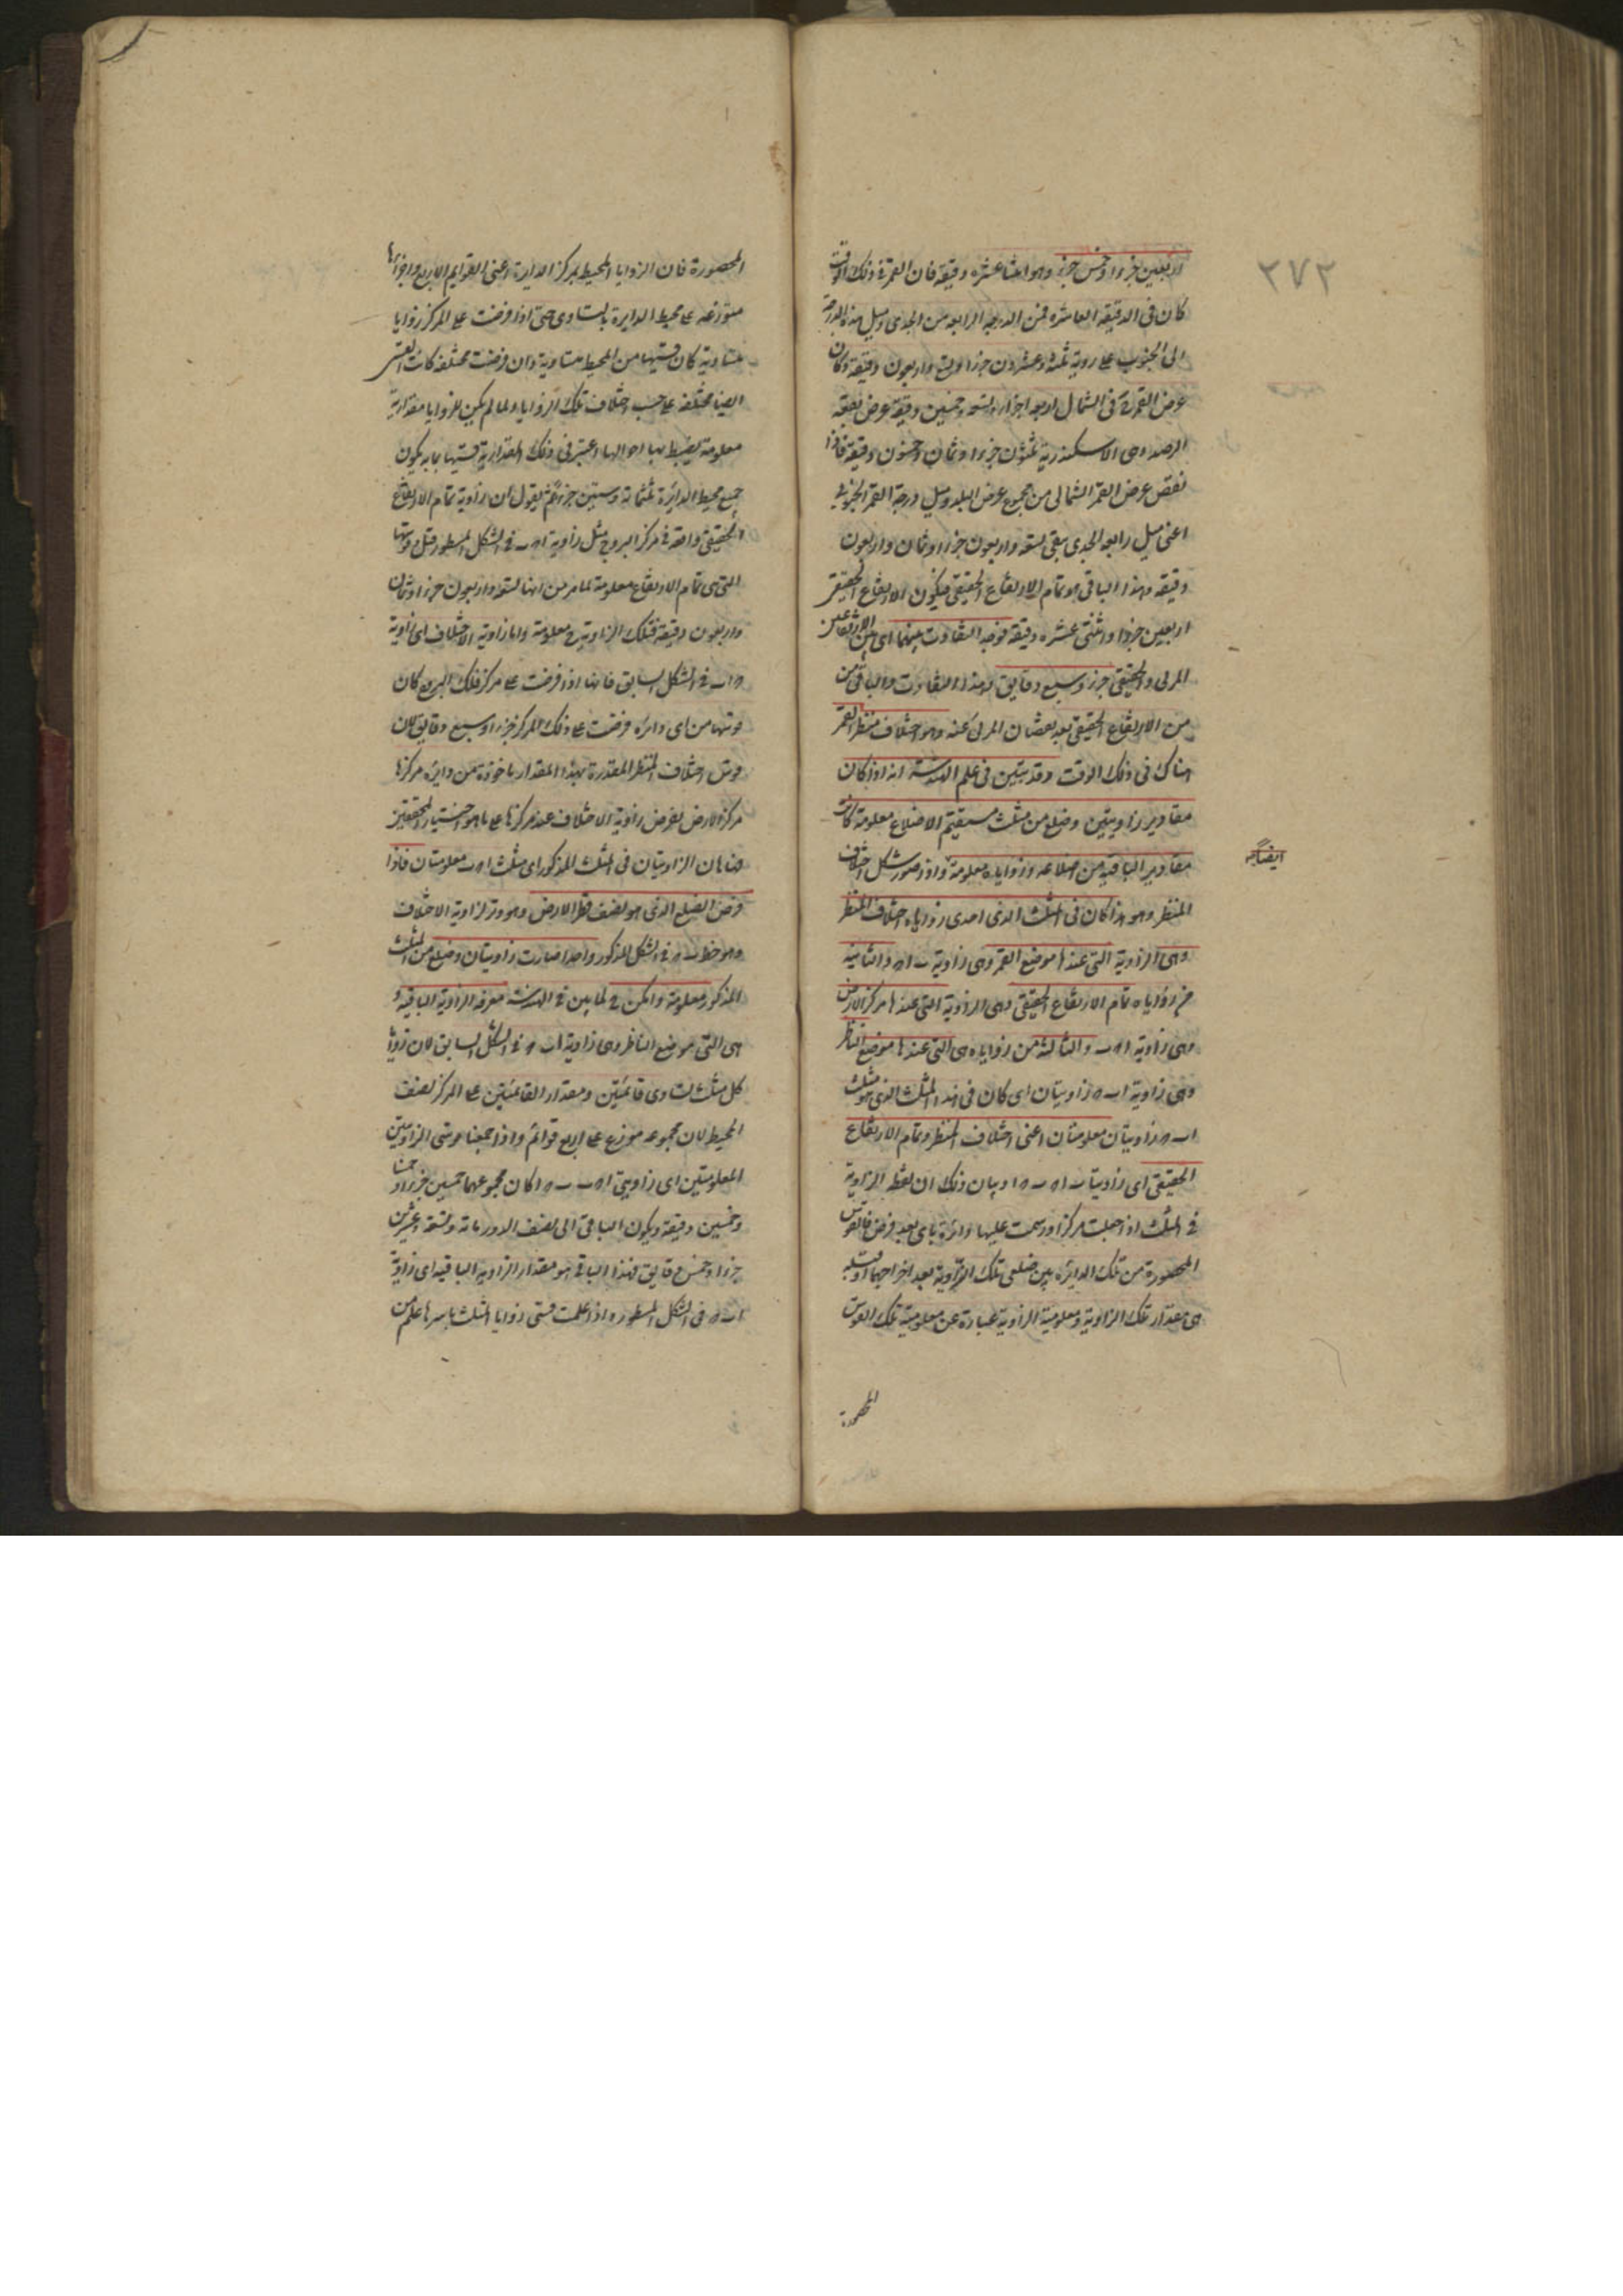 ٢٧٢
اربعين جزءا وخمس جزء وهو اثنا عشره دقيقه فان القمر فى ذلك الوقت
كان فى الدقيقه العاشره من الدرجه الرابعه من الجدى وميل هذه الدرجة
الى الجنوب على روية ثلثه وعشرون جزءا وتسع واربعون دقيقه وكان
عرض القمر فى الشمال اربعه اجزاء وتسعه وخمسين دقيقه وعرض بقعه
الرصد وهى الاسكندرية ثلثون جزءا وثمان وخمسون دقيقه فاذا
نقص عرض القمر الشمالى من مجموع عرض البلد وميل درجة القمر الجنوبى
اعنى ميل رابعه الجدى بقى تسعه واربعون جزءا وثمان واربعون
دقيقه وهذا الباقى هو تمام الارتفاع الحقيقى فيكون الارتفاع الحقيقى
اربعين جزءا واثنتى عشره دقيقه فوجد التفاوت بينهما اى بين الارتفاعين
المرئى والحقيقى جزء وسبع دقايق وهذا التفاوت والباقى من
من الارتفاع الحقيقى بعد نقصان المرئى عنه وهو اختلاف منظر القمر
هناك فى ذلك الوقت وقد تبين فى علم الهندسة انه اذا كان
مقادير زاويتين وضلع من مثلث مستقيم الاضلاع معلومة كانت
مقادير الباقية من اضلاعه وزواياه معلومة واذ تصور شكل اختلاف
ايضا
المنظر وهو هذا كان فى المثلث الذى احدى زواياه اختلاف المنظر
وهى الزاوية التى عندها موضع القمر وهى زاوية ب ا ه والثانية
من زواياه تمام الارتفاع الحقيقى وهى الزاوية التى عندها مركز الارض
وهى زاوية ا ه ب والثالثة من زواياه هى التى عندها موضع الناظر
وهى زاوية ا ب ه زاويتان اى كان فى هذا المثلث الذى هو مثلث
ا ب ه زاويتان معلومتان اعنى اختلاف المنظر وتمام الارتفاع
الحقيقى اى زاويتا ب ا ه ب ه ا وبيان ذلك ان نقطه الزاوية
فى المثلث اذا جعلت مركزا ورسمت عليها دائرة باى بعد فرض فالقوس
المحصورة من تلك الدائره بين ضلعى تلك الزاوية بعد اخراجهما او قبله
هى مقدار تلك الزاوية ومعلومية الزاوية عبارة عن معلومية تلك القوس
المحصورة
المحصورة فان الزوايا المحيط بمركز الدايرة اعنى القوايم الاربع واجزائها
متوزعه على محيط الدايرة بالتساوى حتى اذا فرضت على المركز زوايا
متساوية كان قسيها من المحيط متساوية وان فرضت مختلفه كانت القسى
ايضا مختلفه على حسب اختلاف تلك الزوايا ولما لم يكن للزوايا مقدارية
معلومة يضبط بها احوالها اعتبر فى ذلك المقدارية قسيها بما به يكون
جميع محيط الدائرة ثلثمائة وستين جزءا ثم نقول ان زاوية تمام الارتفاع
الحقيقى واقعة فى مركز البروج مثل زاوية ا ه ب فى الشكل المسطور قبل وقوسها
التى هى تمام الارتفاع معلومة لما مر من انها تسعه واربعون جزءا وثمان
واربعون دقيقه فتلك الزاوية ح معلومة واما زاوية الاختلاف اى زاوية
ه ا ب فى الشكل السابق فانها اذا فرضت على مركز فلك البروج كان
قوسها من اى دائره فرضت على ذلك المركز جزءا وسبع دقايق لان
قوس اختلاف المنظر المقدرة بهذا المقدار ماخوذة من دائره مركزها
مركز الارض بفرض زاوية الاختلاف عند مركزها على ما هو اختيار المحققين
فهاتان الزاويتان فى المثلث المذكور اى مثلث ا ه ب معلومتان فاذا
فرض الضلع الذى هو نصف قطر الارض وهو وتر لزاوية الاختلاف
وهو خط ب ه فى الشكل المذكور واحدا صارت زاويتان وضلع من المثلث
المذكور معلومة وامكن ح لما بين فى الهندسة معرفه الزاوية الباقية و
هى التى موضع الناظر وهى زاوية ا ب ه فى الشكل السابق لان زوايا
كل مثلث تساوى قائمتين ومقدار القائمتين على المركز نصف
المحيط لان مجموعه موزع على اربع قوائم واذا جمعنا قوسى الزاويتين
المعلومتين اى زاويتى ا ه ب ب ه ا كان مجموعهما خمسين جزءا وخمسا
وخمسين دقيقه ويكون الباقى الى نصف الدور مائة وتسعة وعشرين
جزءا وخمس دقايق فهذا الباقى هو مقدار الزاوية الباقيه اى زاوية
ا ب ه فى الشكل المسطور واذا علمت قسى زوايا المثلث باسرها علم من